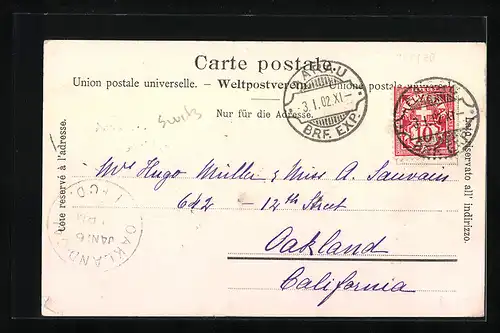 Carte postale.
Union postale universelle. — Weltpostverein. — Unione postale
Nur für die Adresse.
AARAU
3.I.02.XI-
BRF. EXP.
HELVETIA
10
Switz
Côté réservé à l'adresse.
Lato riservato all' indirizzo.
Mrs Hugo Müller & Miss A.
642 — 12th Street
Oakland
California
REC'D
OAKLAND, CAL
JAN 16